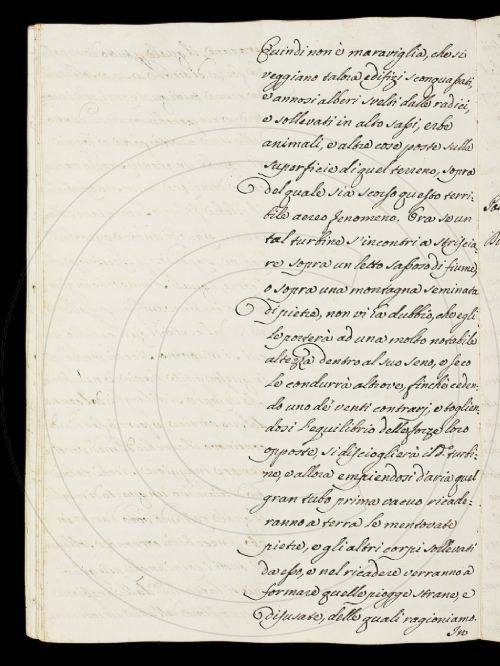 Quindi non è maraviglia, che si
veggiano talora edifizi sconquassati,
e annosi alberi svelti dalle radici,
e sollevati in alto sassi, erbe
animali, e altre cose poste sulla
superficie di quel terreno, sopra
del quale sia scorso questo terri-
bile aereo fenomeno. Ora se un
tal turbine s'incontri a striscia-
re sopra un letto sassoso di fiume,
o sopra una montagna seminata
di pietre, non vi ha dubbio, che egli
le porterà ad una molto notabile
altezza dentro al suo seno, e seco
le condurrà altrove, finchè ceden-
do uno de' venti contrarj, e toglien-
dosi l'equilibrio delle forze loro
opposte, si discioglierà il d.º turbi-
ne, e allora empiendosi d'aria quel
gran tubo prima vacuo ricade-
ranno a terra le mentovate
pietre, e gli altri corpi sollevati
da esso, e nel ricadere verranno a
formare quelle piogge strane, e
disusate, delle quali ragioniamo.
In